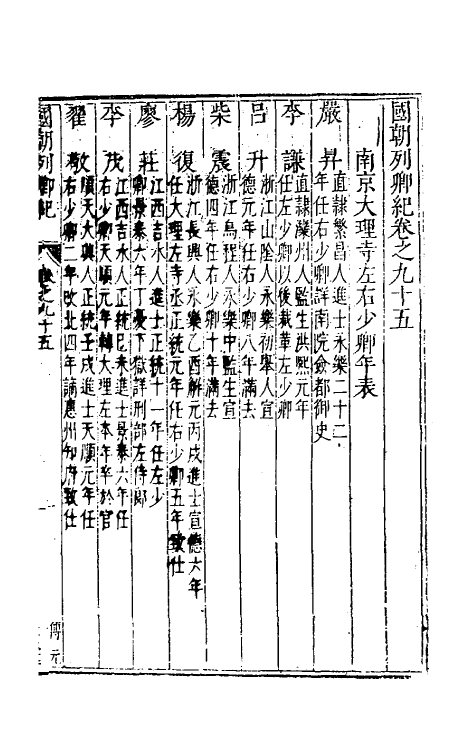 國朝列卿紀卷之九十五
南京大理寺左右少卿年表
嚴昇
直隸繁昌人進士永樂二十二
年任右少卿詳南院僉都御史
李謙
直隸灤州人監生洪熙元年
任左少卿以後裁革左少卿
呂升
浙江山陰人永樂初舉人宣
德元年任右少卿八年滿去
柴震
浙江烏程人永樂中監生宣
德四年任右少卿十年滿去
楊復
浙江長興人永樂乙酉解元丙戌進士宣德六年
任大理左寺丞正統元年任右少卿五年致仕
廖莊
江西吉水人進士正統十一年任左少
卿景泰六年丁憂下獄詳刑部左侍郎
李茂
江西吉水人正統己未進士景泰六年任
右少卿天順元年轉大理左本年卒於官
翟敬
順天大興人正統壬戌進士天順元年任
右少卿二年改北四年謫惠州知府致仕
國朝列卿紀
卷之九十五
傅元